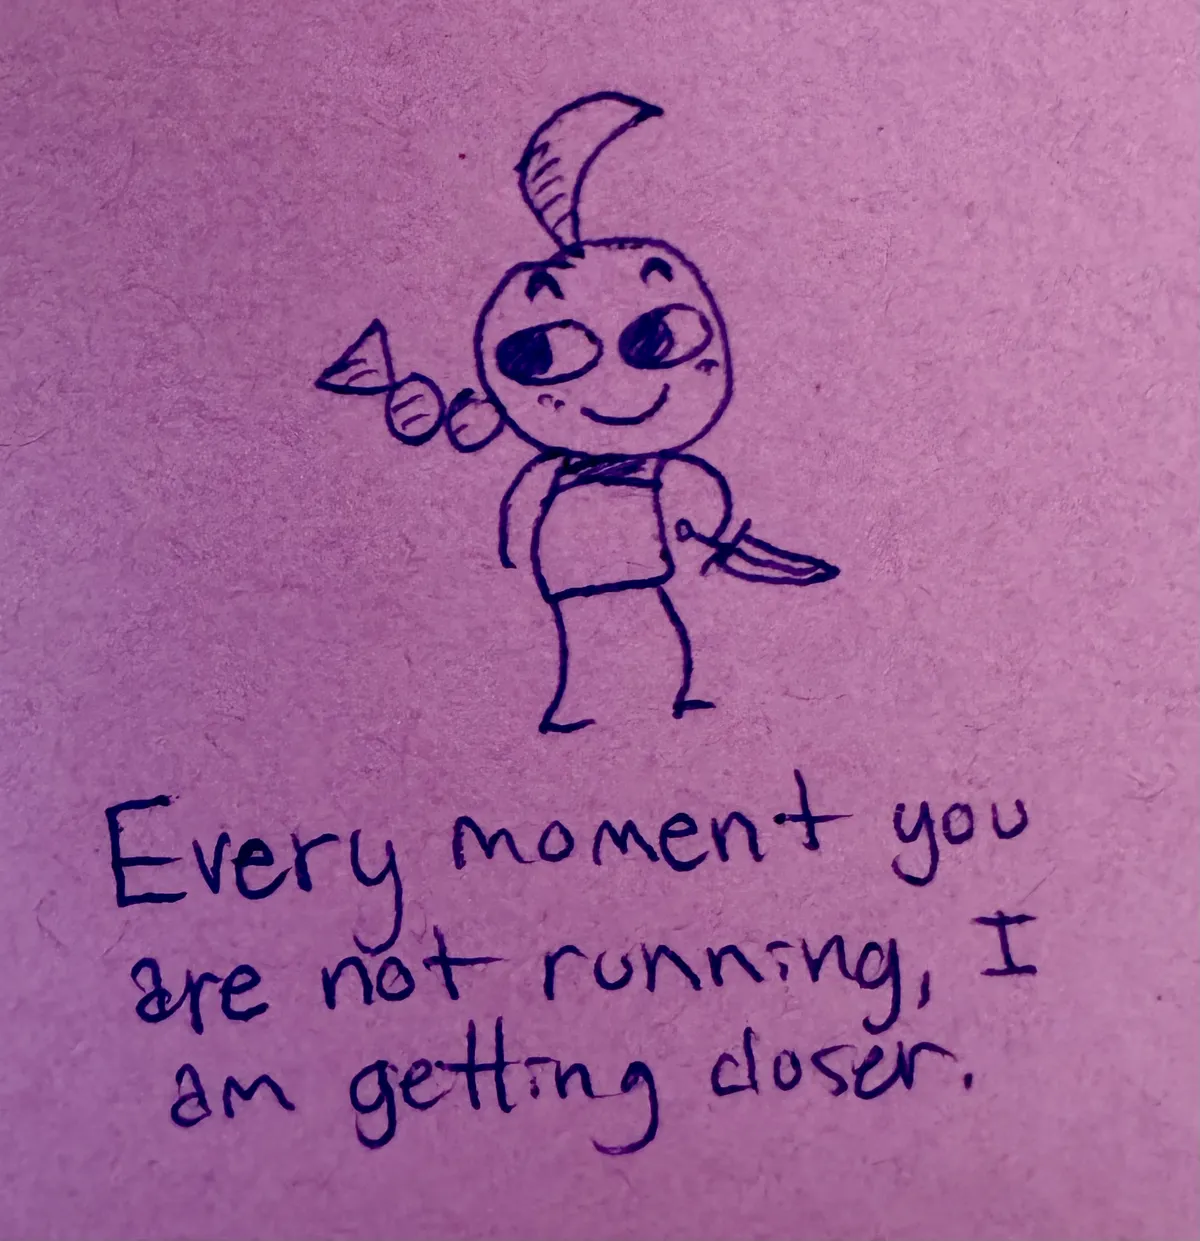 Every moment you
are not running, I
am getting closer.